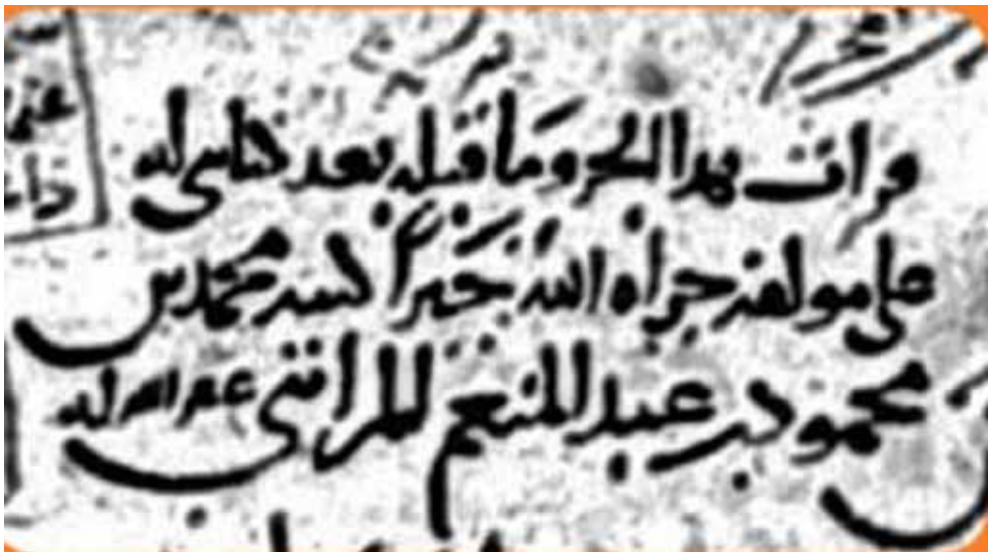 قرات هدا الجز وما قبله بعد كتابتي له
على مولفه جزاه الله خيرا كتبه محمد بن
محمود بن عبد المنعم المراتبي غفر الله له